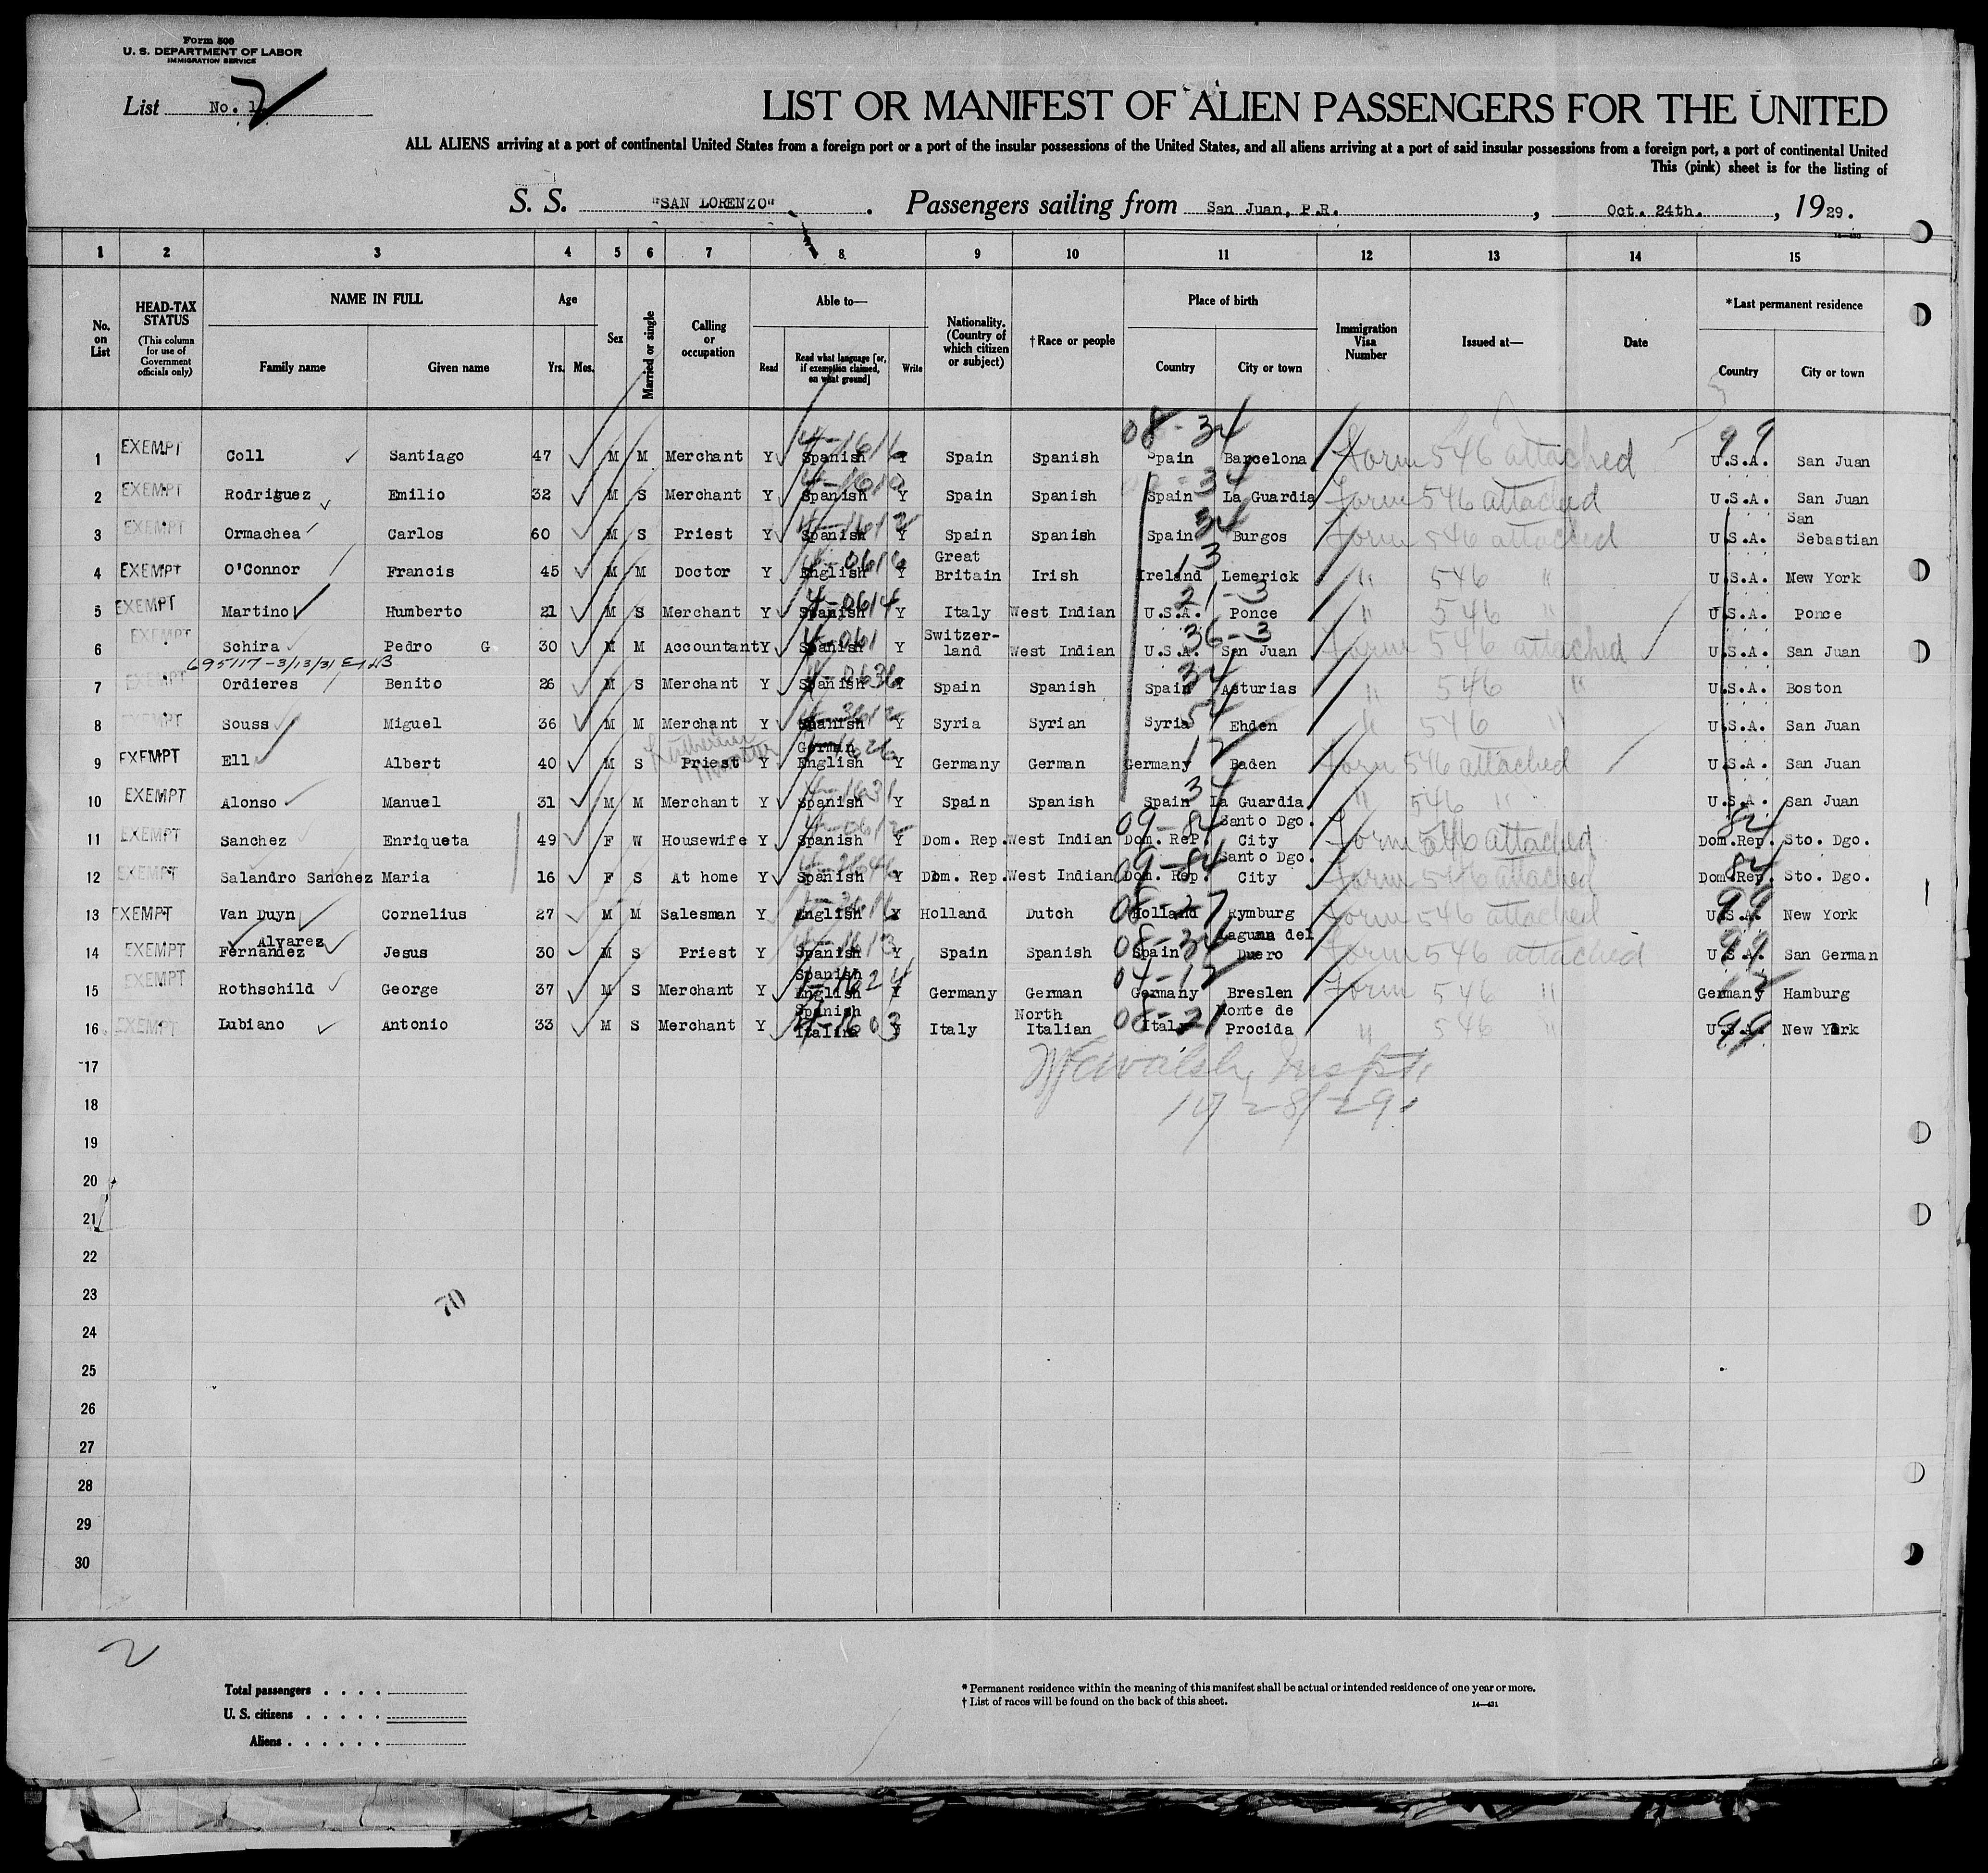 Form 500
U. S. DEPARTMENT OF LABOR
IMMIGRATION SERVICE
List No. 1 2
LIST OR MANIFEST OF ALIEN PASSENGERS FOR THE UNITED
ALL ALIENS arriving at a port of continental United States from a foreign port or a port of the insular possessions of the United States, and all aliens arriving at a port of said insular possessions from a foreign port, a port of continental United
This (pink) sheet is for the listing of
S. S. "SAN LORENZO". Passengers sailing from San Juan, P.R., Oct. 24th., 1929.
1 2 3 4 5 6 7 8 9 10 11 12 13 14 15
No. on List
HEAD-TAX STATUS (This column for use of Government officials only)
NAME IN FULL Family name Given name
Age Yrs. Mos.
Sex
Married or single
Calling or occupation
Able to— Read Read what language [or, if exemption claimed, on what ground] Write
Nationality. (Country of which citizen or subject)
†Race or people
Place of birth Country City or town
Immigration Visa Number
Issued at—
Date
*Last permanent residence Country City or town
08-34 99
1 EXEMPT Coll Santiago 47 M M Merchant Y Spanish Y Spain Spanish Spain Barcelona Form 546 attached U.S.A. San Juan
2 EXEMPT Rodriguez Emilio 32 M S Merchant Y Spanish Y Spain Spanish Spain La Guardia Form 546 attached U.S.A. San Juan
3 EXEMPT Ormachea Carlos 60 M S Priest Y Spanish Y Spain Spanish Spain Burgos Form 546 attached U.S.A. San Sebastian
4 EXEMPT O'Connor Francis 45 M M Doctor Y English Y Great Britain Irish Ireland Lemerick " 546 " U.S.A. New York
5 EXEMPT Martino Humberto 21 M S Merchant Y Spanish Y Italy West Indian U.S.A. Ponce " 546 " U.S.A. Ponce
6 EXEMPT Schira Pedro G 30 M M Accountant Y Spanish Y Switzer-land West Indian U.S.A. San Juan Form 546 attached U.S.A. San Juan
695117-3/13/31
7 EXEMPT Ordieres Benito 26 M S Merchant Y Spanish Y Spain Spanish Spain Asturias " 546 " U.S.A. Boston
8 EXEMPT Souss Miguel 36 M M Merchant Y Spanish Y Syria Syrian Syria Ehden " 546 " U.S.A. San Juan
9 EXEMPT Ell Albert 40 M S Priest Y German English Y Germany German Germany Baden Form 546 attached U.S.A. San Juan
10 EXEMPT Alonso Manuel 31 M M Merchant Y Spanish Y Spain Spanish Spain La Guardia " 546 " U.S.A. San Juan
11 EXEMPT Sanchez Enriqueta 49 F W Housewife Y Spanish Y Dom. Rep. West Indian Dom. ReP. Santo Dgo. City Form 546 attached Dom.Rep. Sto. Dgo.
12 EXEMPT Salandro Sanchez Maria 16 F S At home Y Spanish Y Dom. Rep. West Indian Dom. Rep. Santo Dgo. City Form 546 attached Dom.Rep. Sto. Dgo.
13 EXEMPT Van Duyn Cornelius 27 M M Salesman Y English Y Holland Dutch Holland Rymburg Form 546 attached U.S.A. New York
14 EXEMPT Alvarez Fernandez Jesus 30 M S Priest Y Spanish Y Spain Spanish Spain Laguna del Duero Form 546 attached U.S.A. San German
15 EXEMPT Rothschild George 37 M S Merchant Y Spanish English Y Germany German Germany Breslen Form 546 " Germany Hamburg
16 EXEMPT Lubiano Antonio 33 M S Merchant Y Spanish Italina Y Italy North Italian Italy Monte de Procida " 546 " U.S.A. New York
17
18
19
20
21
22
23
24
25
26
27
28
29
30
70
2
Total passengers . . . .
U. S. citizens . . . . .
Aliens . . . . . .
* Permanent residence within the meaning of this manifest shall be actual or intended residence of one year or more.
† List of races will be found on the back of this sheet.
14—431